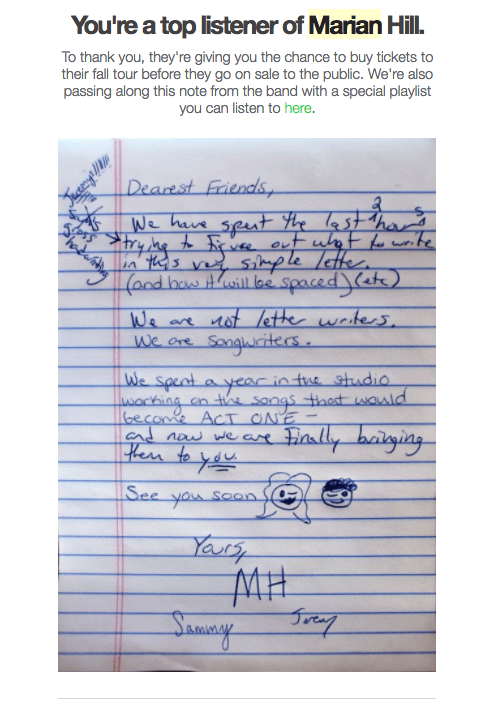 You're a top listener of Marian Hill.
To thank you, they're giving you the chance to buy tickets to
their fall tour before they go on sale to the public. We're also
passing along this note from the band with a special playlist
you can listen to here.
Jeremy's!!!!!!
gross
handwriting
Dearest Friends,
We have spent the last 2 hours
trying to figure out what to write
in this very simple letter.
(and how it will be spaced) (etc)
We are not letter writers.
We are songwriters.
We spent a year in the studio
working on the songs that would
become ACT ONE —
and now we are finally bringing
them to you.
See you soon
Yours,
MH
Sammy Jeremy